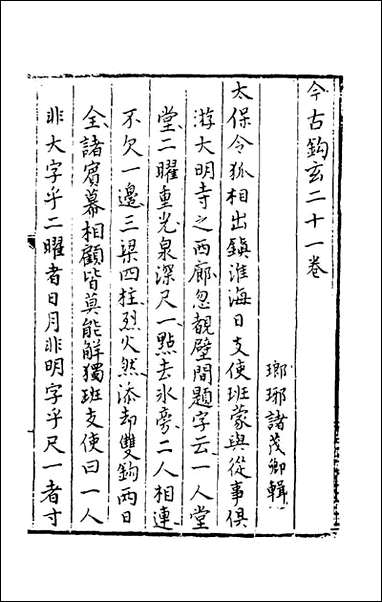 今古鈎玄二十一卷
瑯琊諸茂卿輯
太保令狐相出鎮淮海日支使班蒙與從事俱
游大明寺之西廊忽覩壁間題字云一人堂
堂二曜重光泉深尺一點去氷旁二人相連
不欠一邊三梁四柱烈火然添却雙鈎兩日
全諸賓幕相顧皆莫能解獨班支使曰一人
非大字乎二曜者日月非明字乎尺一者寸